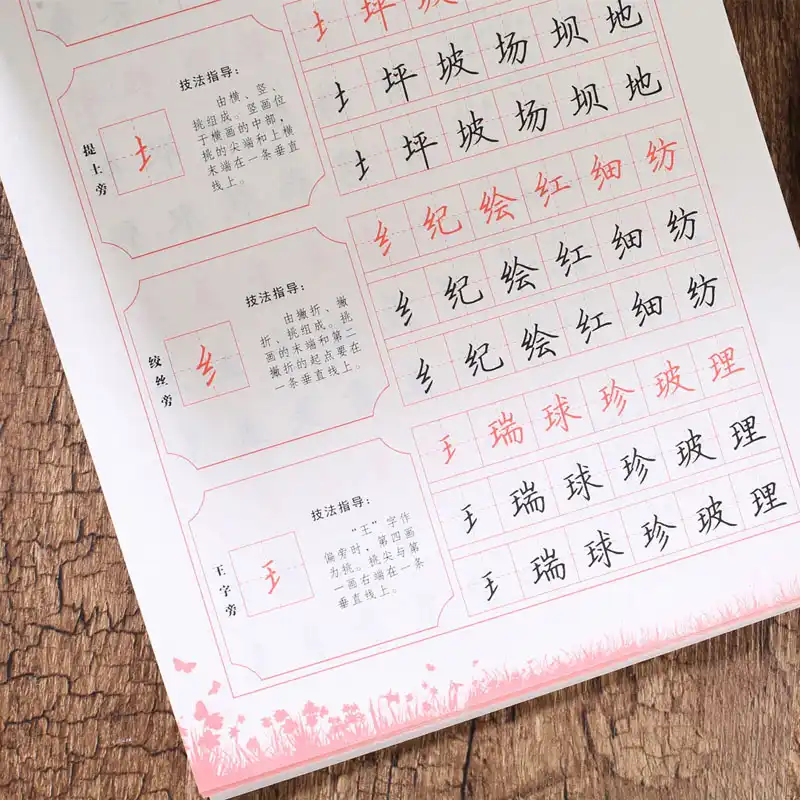 土 坪 坡
土 坪 坡 场 坝 地
土 坪 坡 场 坝 地
提土旁
土
技法指导：
由横、竖、
挑组成。竖画位
于横画的中部，
挑的尖端和上横
末端在一条垂直
线上。
纟 纪 绘 红 细 纺
纟 纪 绘 红 细 纺
纟 纪 绘 红 细 纺
绞丝旁
纟
技法指导：
由撇折、撇
折、挑组成。挑
画的末端和第二
撇折的起点要在
一条垂直线上。
王 瑞 球 珍 玻 理
王 瑞 球 珍 玻 理
王 瑞 球 珍 玻 理
王字旁
王
技法指导：
“王”字作
偏旁时，第四画
为挑。挑尖与第
一画右端在一条
垂直线上。